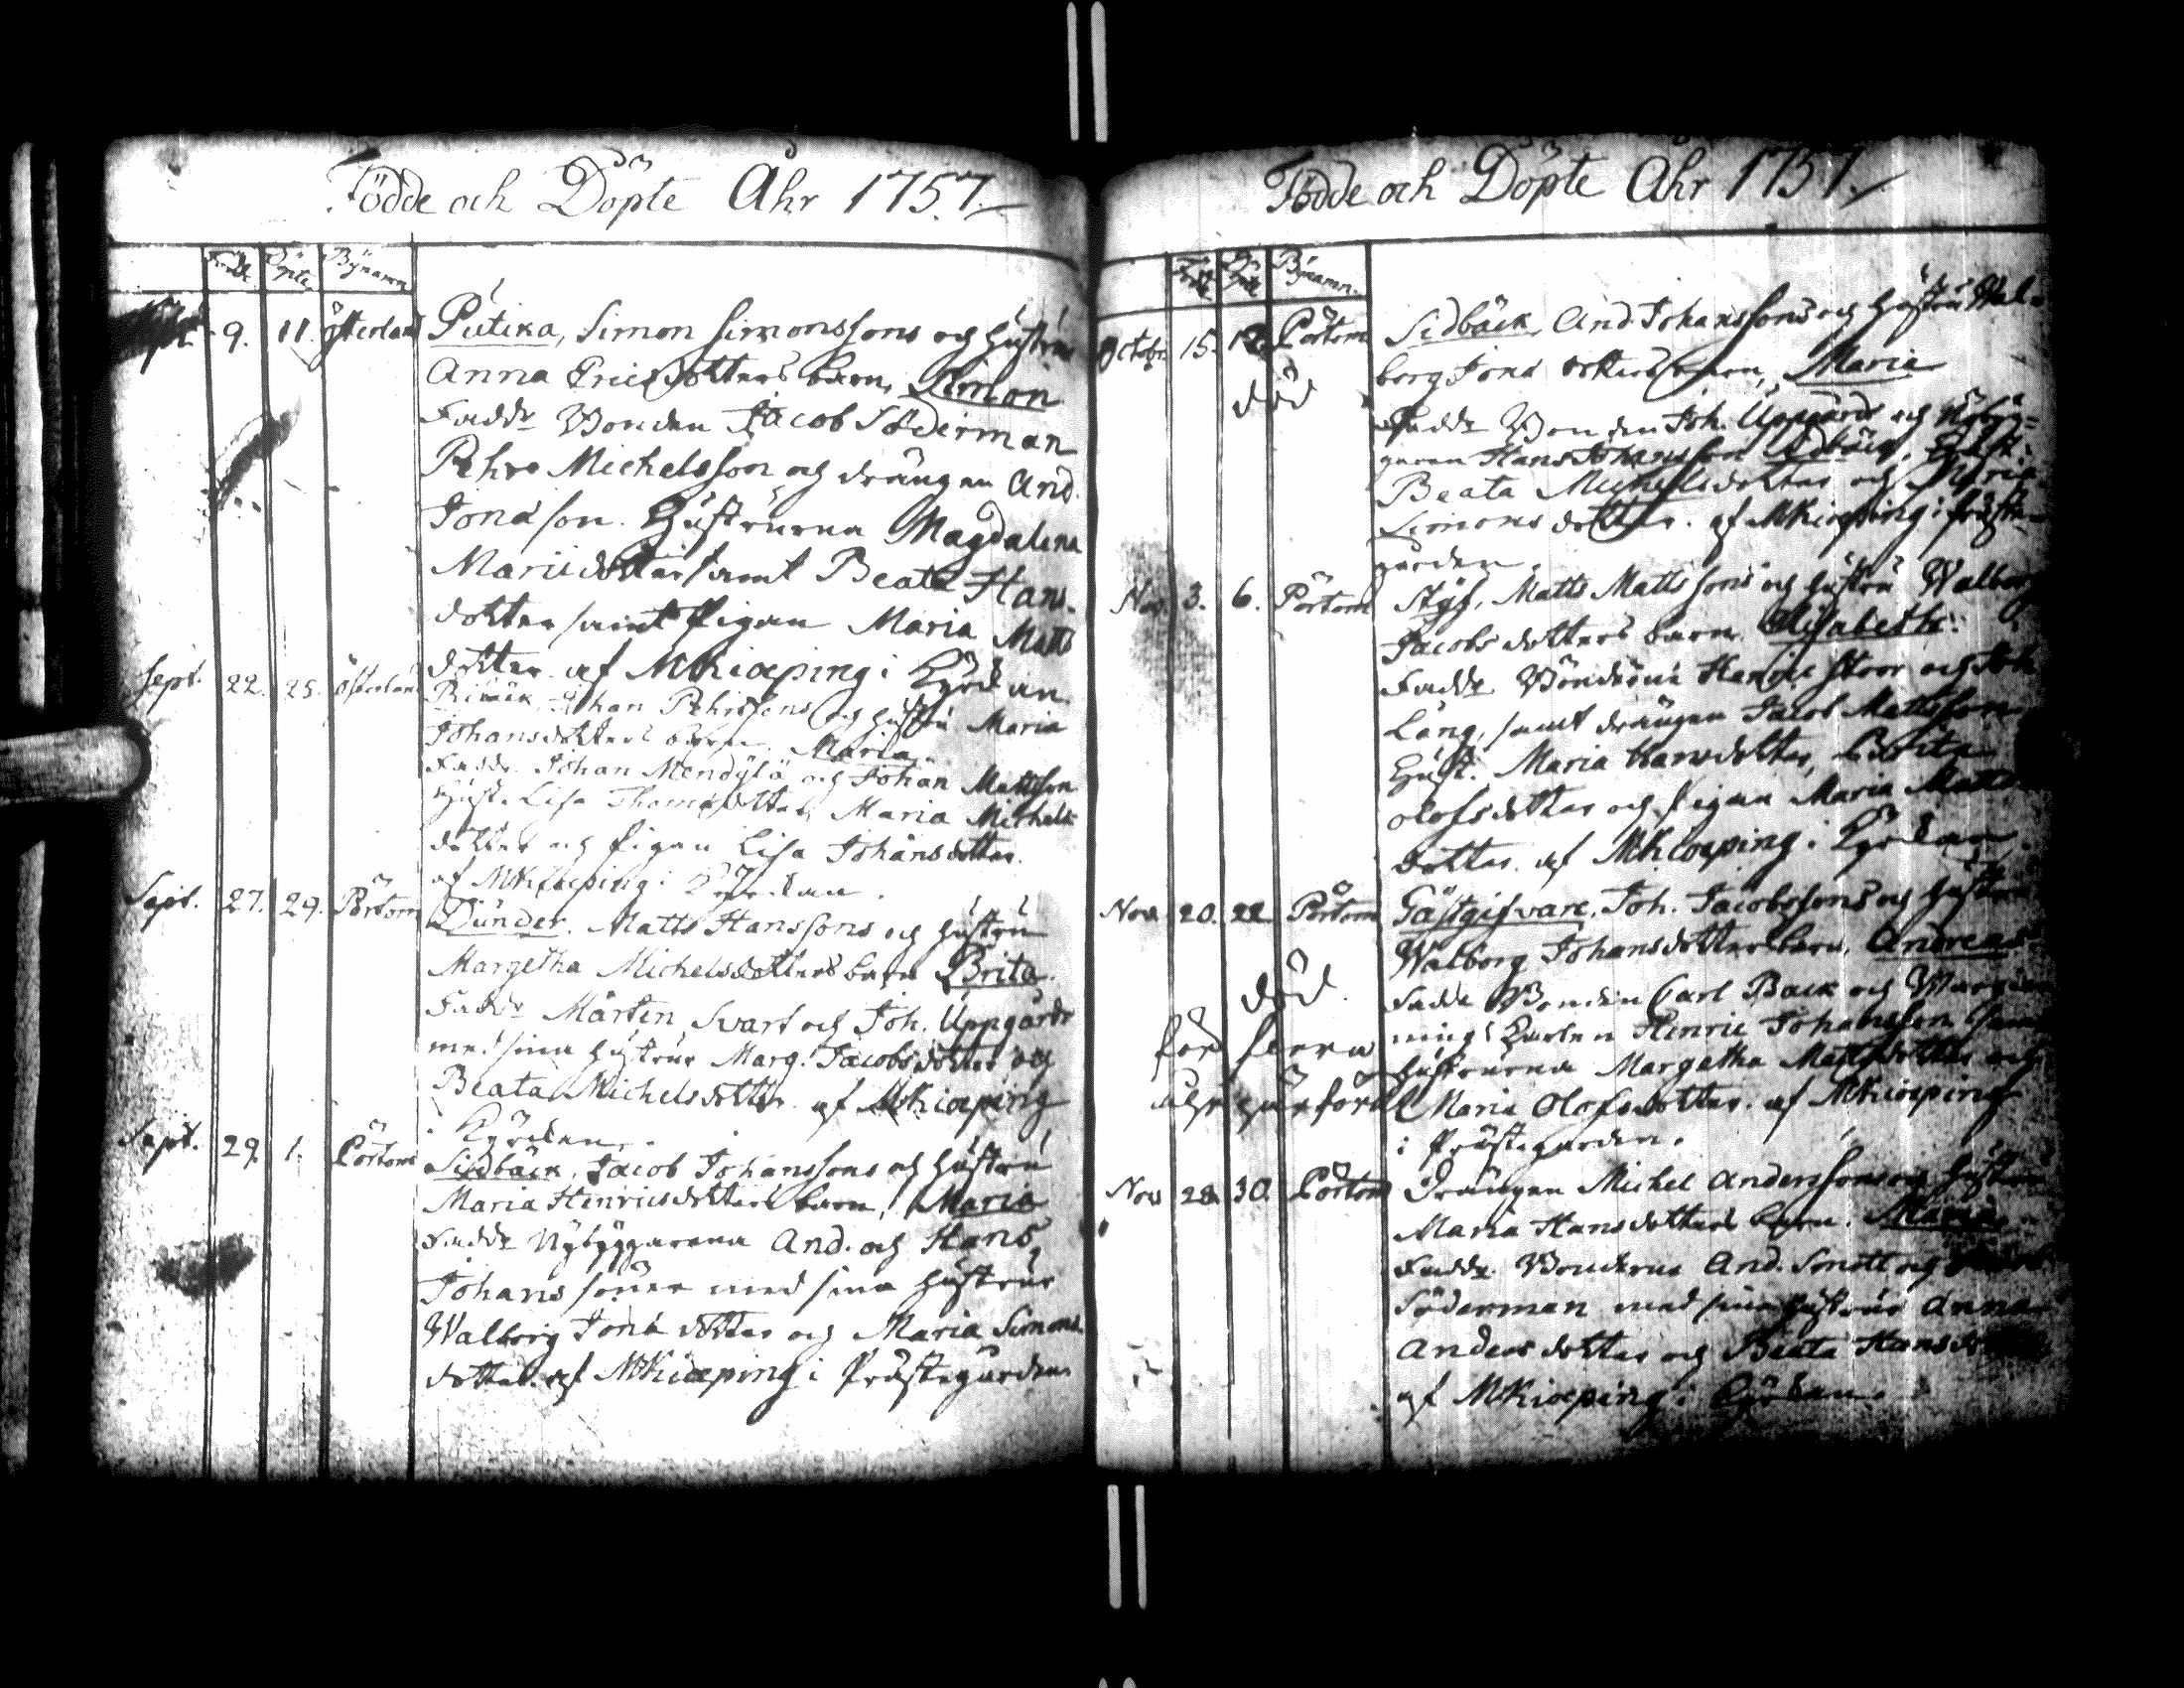 Födde och Döpte Åhr 1757.
Födde Döpte Bÿnamn
Sept. 9. 11. Österland Putika, Simon Simonssons och hustrus
Anna Ericsdotters barn, Simon
Faddr Bonden Jacob Söderman
Pehr Michelsson och drängen And.
Jonsson. Hustrurna Magdalena
Mariedotter samt Beata Hans-
dotter samt Pigan Maria Matts
dotter af MKiöping i Kÿrkan
Sept. 22. 25. Österland Johan Pehrssons och hustru Maria
Johansdotters barn. Maria.
Faddr. Johan Mendÿlä och Johan Mattsson
Hust. Lisa Thomædotter, Maria Michels
dotter och Pigan Lisa Johansdotter.
af MKiöping i Kÿrkan.
Sept. 27. 29. Pörtom Dunder. Matts Hanssons och hustru
Margetha Michelsdotters barn Brita.
Faddr Mårten Svart och Joh. Uppgårds
med sina hustrur Marg. Jacobsdotter och
Beata Michelsdotter. af MKiöping
i Kÿrkan.
Sept. 29. 1. Pörtom Sidbäck, Jacob Johanssons och hustru
Maria Henricsdotters barn, Maria
Faddr Nÿbÿggarena And. och Hans
Johanssöner med sina hustrur
Walborg Jonædotter och Maria Simons
dotter. af MKiöping i Prästegården
Födde och Döpte Åhr 1757.
Födde Döpte Bÿnamn
Octobr. 15. Pörtom Sidbäck, And. Johanssons och hustru Wal-
borg Jonædotters barn, Maria
död
Faddr Bonden Joh. Uppgårds och Nÿbÿg-
garen Hans Johansson Sidbäck. Hust.
Beata Michelsdotter och Maria
Simonsdotter. af MKiöping i Präste-
gården.
Nov. 3. 6. Pörtom Styf, Matts Mattssons och hustru Walborg
Jacobsdotters barn Elisabeth.
Faddr Bönderne Hans Stoor och Joh.
Lång, samt drängen Jacob Mattsson
Hust. Maria Hansdotter, Brita
Olofsdotter och Pigan Maria Matts
dotter. af MKiöping i Kÿrkan
Nov. 20. 22. Pörtom Gästgifvare, Joh. Jacobssons och hustru
Walborg Johansdotters barn, Andreas
död.
Faddr Bonden Carl Back och
Karlen Henric Johansson samt
hustrurna Margetha Mattsdotter och
Maria Olofsdotter. af MKiöping
i Prästegården.
Nov. 28. 30. Pörtom Drängen Michel Anderssons och hustru
Maria Hansdotters barn. Maria
Faddr. Bönderne And. Smått och
Söderman med sina hustrur Anna
Andersdotter och Beata Hansdotter
af MKiöping i Kÿrkan.